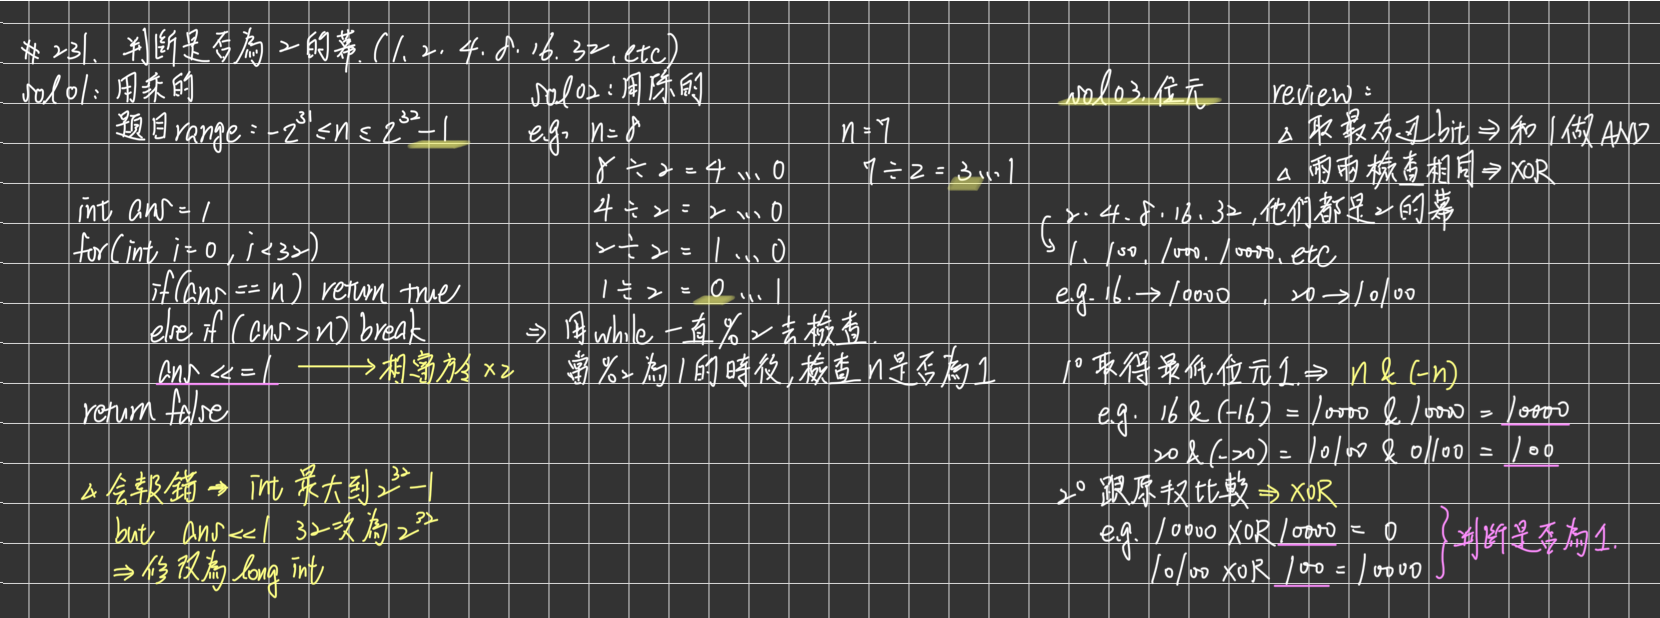 # 231. 判斷是否為 2 的冪. (1. 2. 4. 8. 16. 32. etc)
sol01: 用乘的
題目 range: -2^31 ≤ n ≤ 2^32 - 1
int ans = 1
for(int i=0, i<32)
if(ans == n) return true
else if (ans > n) break
ans <<= 1 → 相當於 ×2
return false
△ 会報錯 → int 最大到 2^32-1
but ans<<1 32次為 2^32
⇒ 修改為 long int
sol02: 用除的
e.g. n=8 n=7
8 ÷ 2 = 4 ... 0 7 ÷ 2 = 3 ... 1
4 ÷ 2 = 2 ... 0
2 ÷ 2 = 1 ... 0
1 ÷ 2 = 0 ... 1
⇒ 用 while 一直 % 2 去檢查.
當 %2 為 1 的時後, 檢查 n 是否為 1
sol03. 位元
review:
△ 取最右边 bit ⇒ 和 1 做 AND
△ 兩兩檢查相同 ⇒ XOR
2. 4. 8. 16. 32, 他們都是 2 的冪
1. 100. 1000. 10000. etc
e.g. 16. → 10000 , 20 → 10100
1° 取得最低位元 1. ⇒ n & (-n)
e.g. 16 & (-16) = 10000 & 10000 = 10000
20 & (-20) = 10100 & 01100 = 100
2° 跟原 比較 ⇒ XOR
e.g. 10000 XOR 10000 = 0
10100 XOR 100 = 10000
判斷是否為 1.